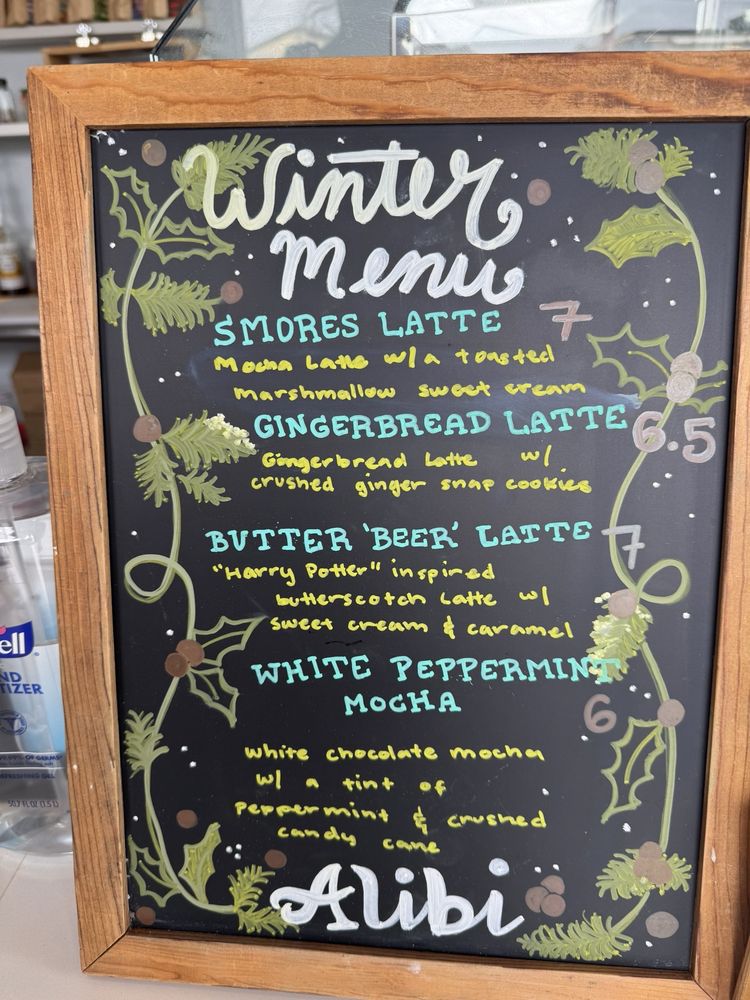 Winter
Menu
S'MORES LATTE 7
Mocha Latte w/ a toasted
marshmallow sweet cream
GINGERBREAD LATTE 6.5
Gingerbread Latte w/
crushed ginger snap cookies
BUTTER 'BEER' LATTE 7
"Harry Potter" inspired
butterscotch latte w/
sweet cream & caramel
WHITE PEPPERMINT
MOCHA 6
white chocolate mocha
w/ a tint of
peppermint & crushed
candy cane
Alibi
ell
ND
TIZER
OF GERMS
EFRESHING GEL
50.7 FL OZ (1.5 L)